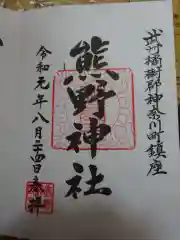 武州橘樹郡神奈川町鎮座
熊野神社
令和元年八月二十四日参拝